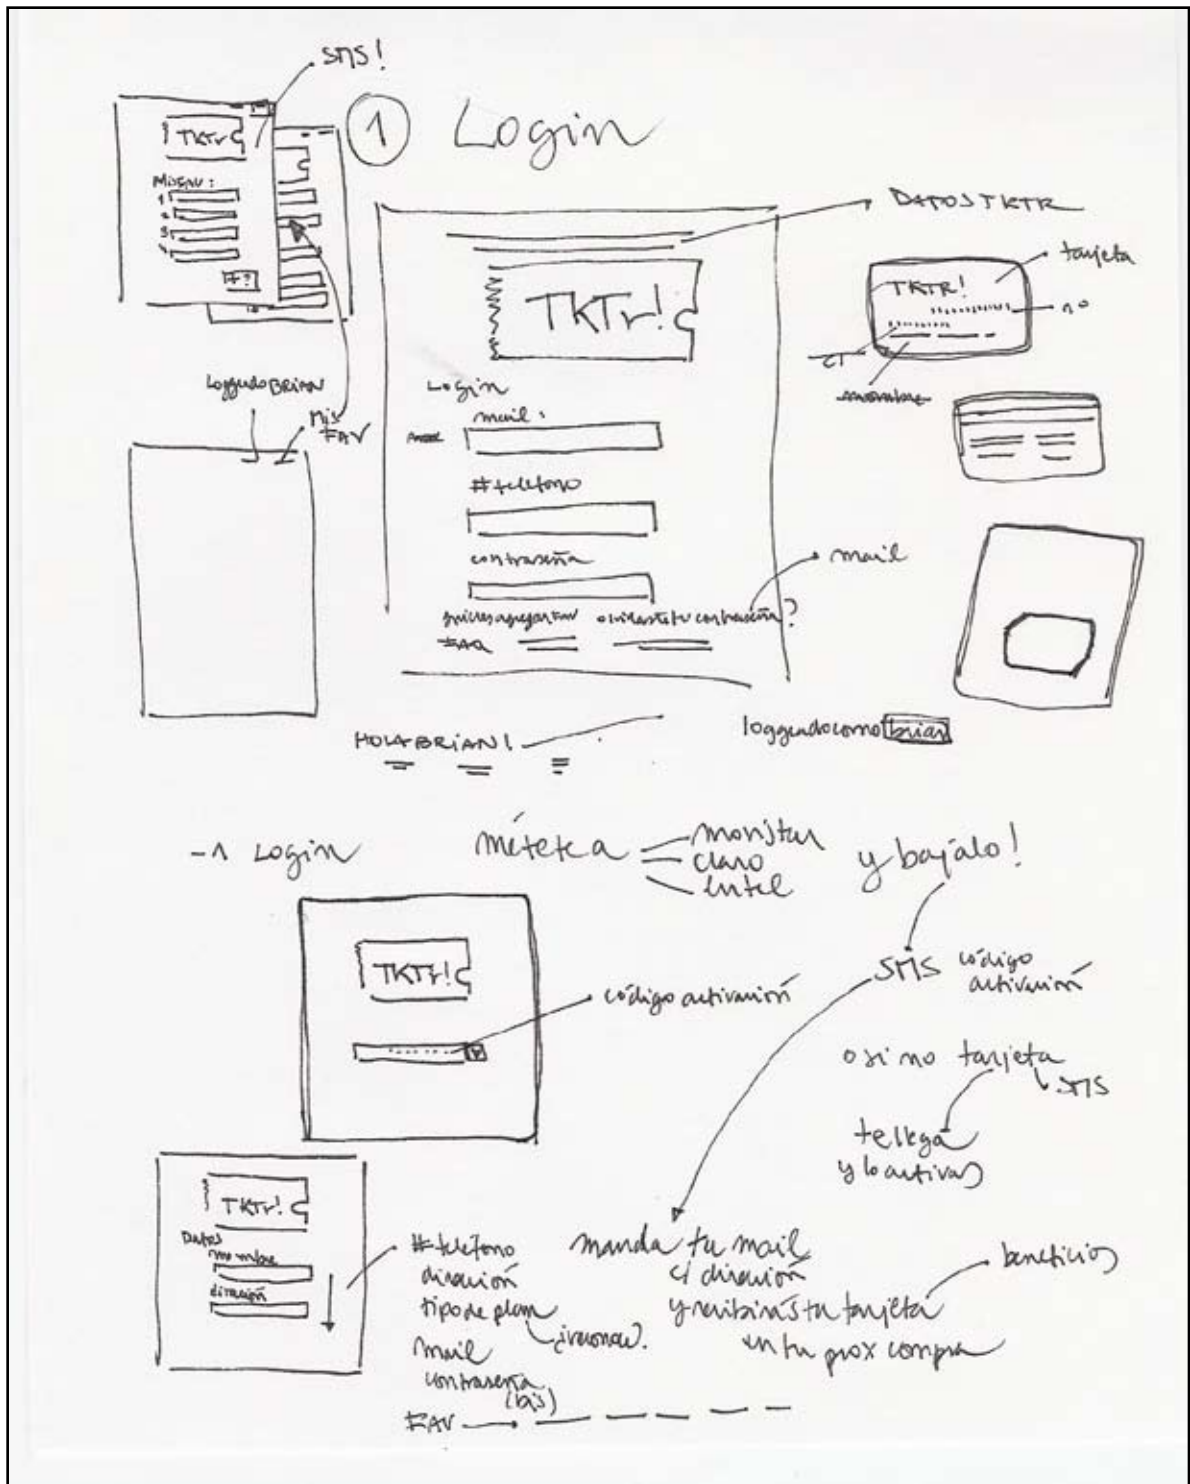 SMS!
TKTr
1
Login
DATOS TKTR
tarjeta
TKTR!
nº
nombre
1
2
3
4
+?
TKTr!
Login
mail:
#telefono
contraseña
mail
olvidaste tu contraseña?
FAQ
loggeado BRIAN
Mis
FAV
HOLA BRIAN!
loggeado como brian
-1 Login
métete a
movistar
claro
Entel
y bajálo!
TKTr!
código activación
SMS código
activación
o si no tarjeta
SMS
te llega
y lo activas
TKTr!
Datos
nombre
dirección
#telefono
dirección
tipo de plan
mail
contraseña
(bis)
FAV
manda tu mail
c/ dirección
y recibirás tu tarjeta
en tu prox compra
beneficios